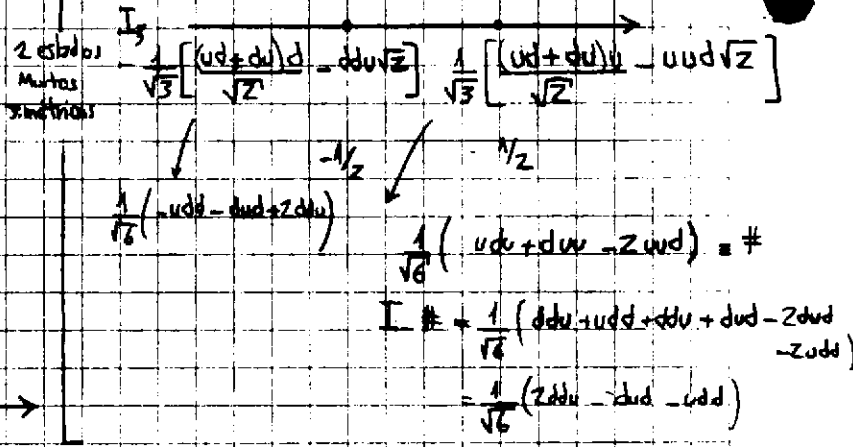 I₃
2 estados
Mixtos
simétricos
- 1/√3 [ (ud+du)d/√2 - ddu√2 ]   1/√3 [ (ud+du)u/√2 - uud√2 ]
-1/2   1/2
1/√6 ( -udd - dud + 2ddu )
1/√6 ( udu + duu - 2uud ) = #
I_ # = 1/√6 ( ddu + udd + ddu + dud - 2dud
-2udd )
= 1/√6 ( 2ddu - dud - udd )